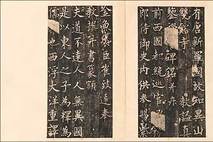 有唐新羅國故知異山
雙谿寺教諡真
禪師碑銘并序
前西國都統巡官
郎侍御史內供奉賜紫
金魚袋臣崔致遠奉
教撰并書篆額
夫道不遠人人無異國
是以東人之子為釋為
也西浮大洋重譯